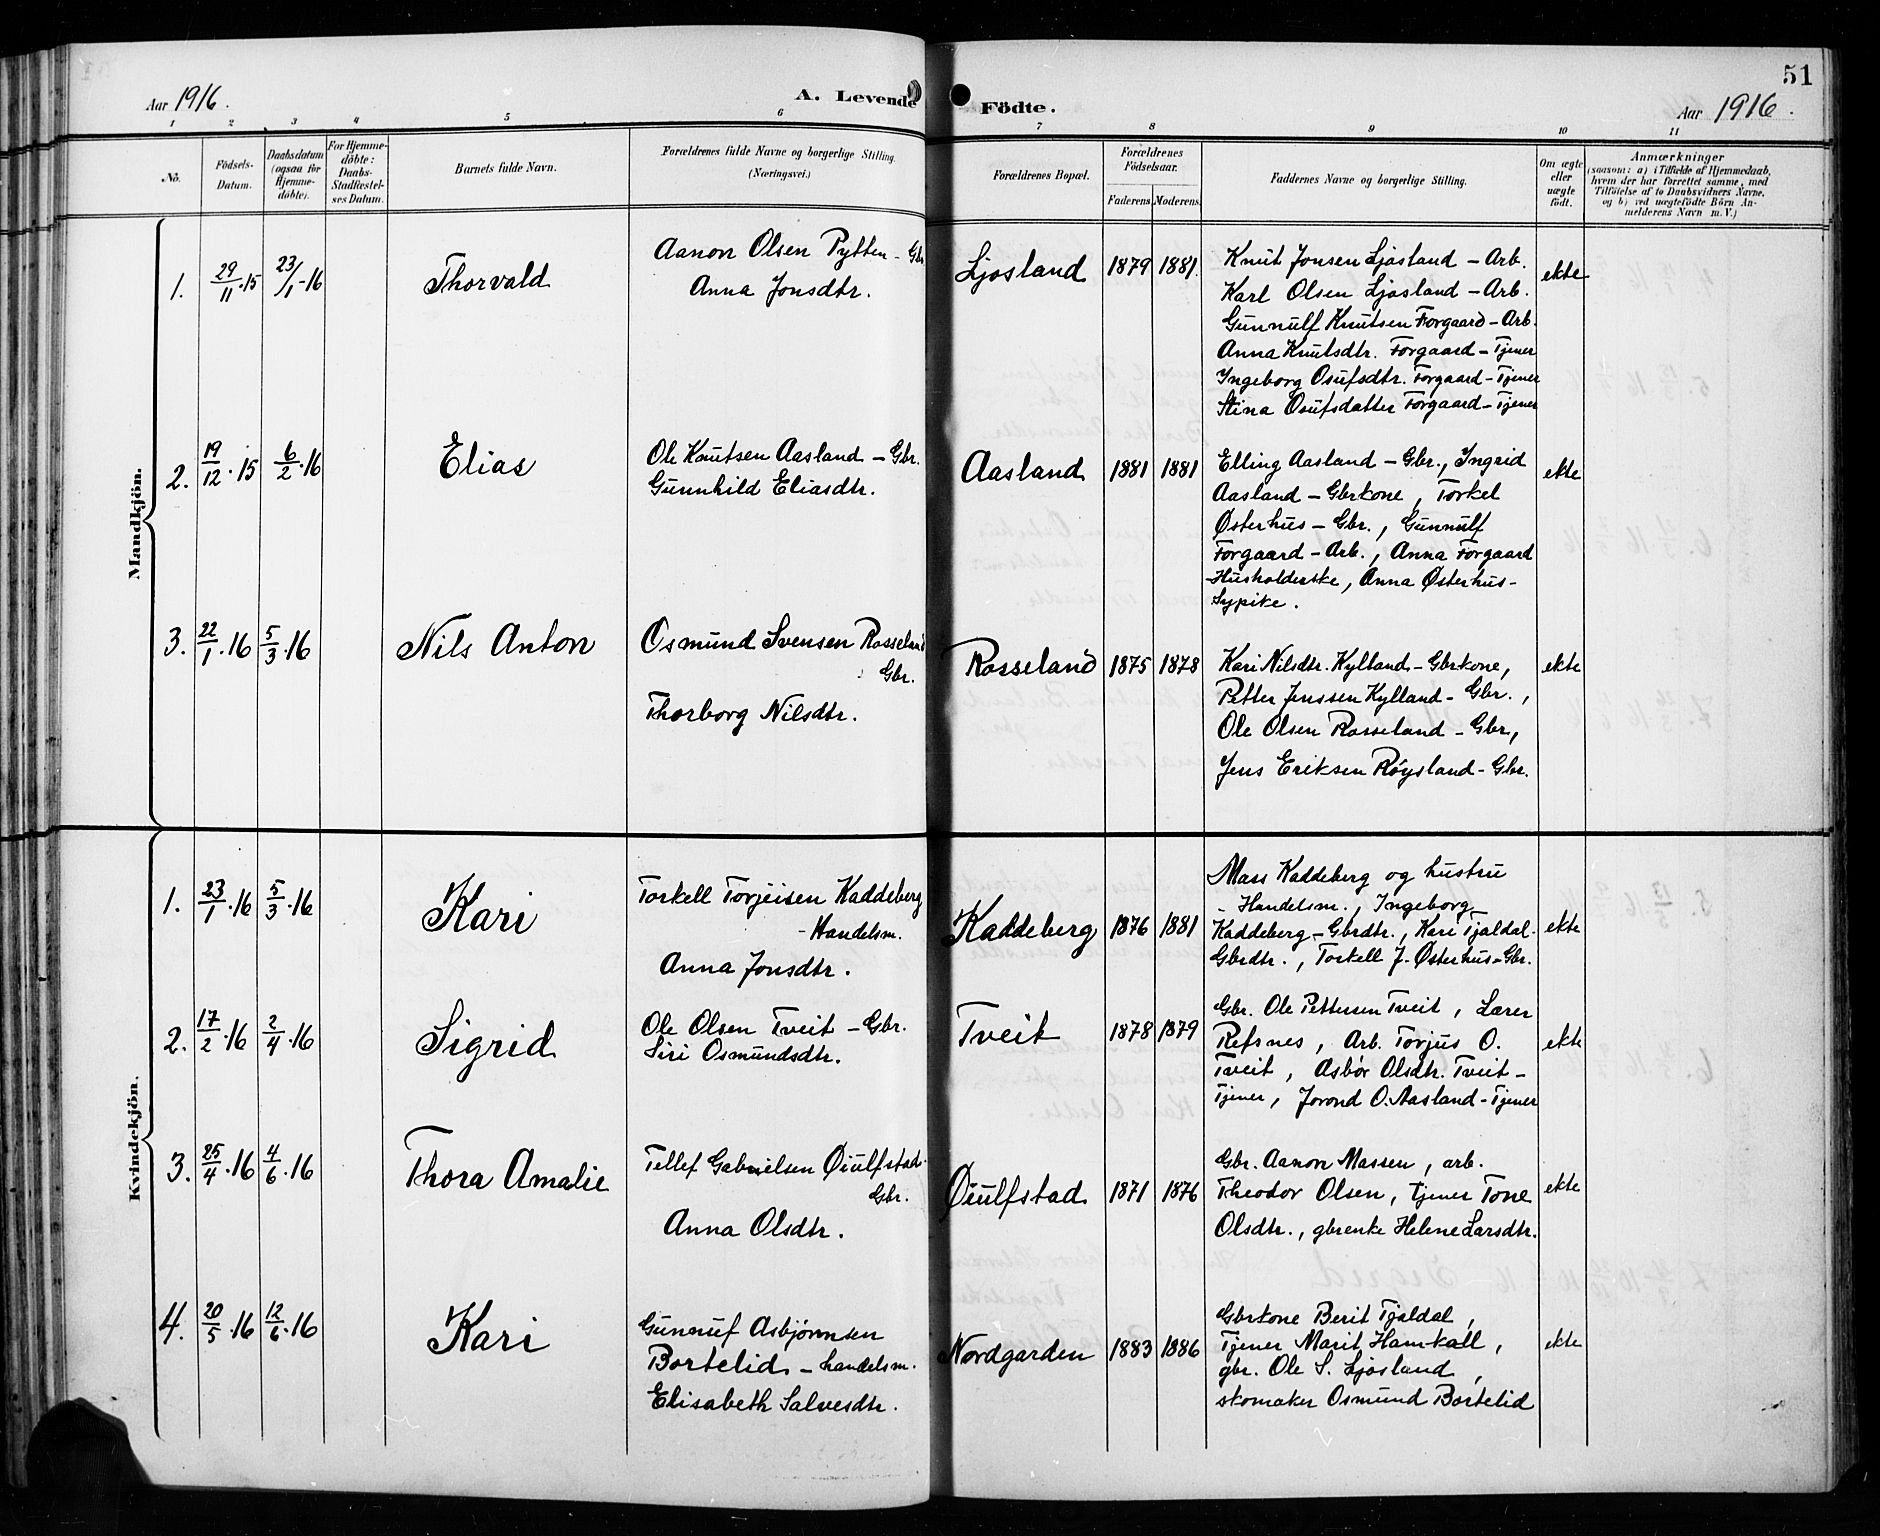 51
Aar 1916.
A. Levende Födte.
Aar 1916.
1 2 3 4 5 6 7 8 9 10 11
No.
Födsels-
Datum.
Daabsdatum
(ogsaa for
Hjemme-
döbte).
For Hjemme-
döbte:
Daabs-
Stadfæstel-
ses Datum.
Barnets fulde Navn.
Forældrenes fulde Navne og borgerlige Stilling.
(Næringsvei.)
Forældrenes Bopæl.
Forældrenes
Födselsaar.
Faderens. Moderens.
Faddernes Navne og borgerlige Stilling.
Om ægte
eller
uægte
födt.
Anmærkninger
(saasom: a) i Tilfælde af Hjemmedaab,
hvem der har forrettet samme, med
Tilföielse af to Daabsvidners Navne,
og b) ved uægtefödte Börn An-
melderens Navn m. V.)
Mandkjön.
1. 29/11.15 23/1-16 Thorvald
Aanon Olsen Pytten - Gbr
Anna Jonsdtr.
Ljosland 1879 1881.
Knut Jonsen Ljosland - Arb.
Karl Olsen Ljosland - Arb.
Gunnulf Knutsen Forgaard - Arb.
Anna Knutsdtr. Forgaard - Tjener
Ingeborg Osufsdtr. Forgaard - Tjener
Stina Osufsdatter Forgaard - Tjener
ekte
2. 19/12.15 6/2.16 Elias
Ole Knutsen Aasland - Gbr.
Gunnhild Eliasdtr.
Aasland 1881 1881
Elling Aasland - Gbr., Ingrid
Aasland - Gbrkone, Torkel
Østerhus - Gbr., Gunnulf
Forgaard - Arb., Anna Forgaard
- Husholderske, Anna Østerhus -
Sypike.
ekte
3. 22/1.16 5/3.16 Nils Anton
Osmund Svensen Rosseland
Gbr.
Thorborg Nilsdtr.
Rosseland 1875 1878
Kari Nilsdtr. Kylland - Gbrkone,
Petter Jenssen Kylland - Gbr.,
Ole Olsen Rosseland - Gbr,
Jens Eriksen Röysland - Gbr.
ekte
Kvindekjön.
1. 23/1.16 5/3.16 Kari
Torkell Torjeisen Kaddeberg
- Handelsm.
Anna Jonsdtr.
Kaddeberg 1876 1881
Mass Kaddeberg og hustru
- Handelsm., Ingeborg
Kaddeberg - Gbrdtr., Kari Tjaldal -
Gbrdtr., Torkell J. Østerhus - Gbr.
ekte
2. 17/2.16 2/4.16 Sigrid
Ole Olsen Tveit - Gbr.
Siri Osmundsdtr.
Tveit 1878 1879
Gbr. Ole Pettersen Tveit, Lærer
Refsnes, Arb. Torjus O.
Tveit, Asbör Olsdtr. Tveit -
Tjener, Jorond O. Aasland - Tjener
ekte
3. 25/4.16 4/6.16 Thora Amalie
Tellef Gabrielsen Øiulfstad
Gbr.
Anna Olsdtr.
Øiulfstad 1871 1876
Gbr. Aanon Massen, arb.
Theodor Olsen, tjener Tone
Olsdtr., gbrenke Helene Larsdtr.
ekte
4. 20/5.16 12/6.16 Kari
Gunnuf Asbjørnsen
Bortelid - handelsm.
Elisabeth Salvesdtr.
Nordgarden 1883 1886
Gbrkone Berit Tjaldal,
Tjener Marit Hamkall,
gbr. Ole S. Ljosland,
skomaker Osmund Bortelid
ekte